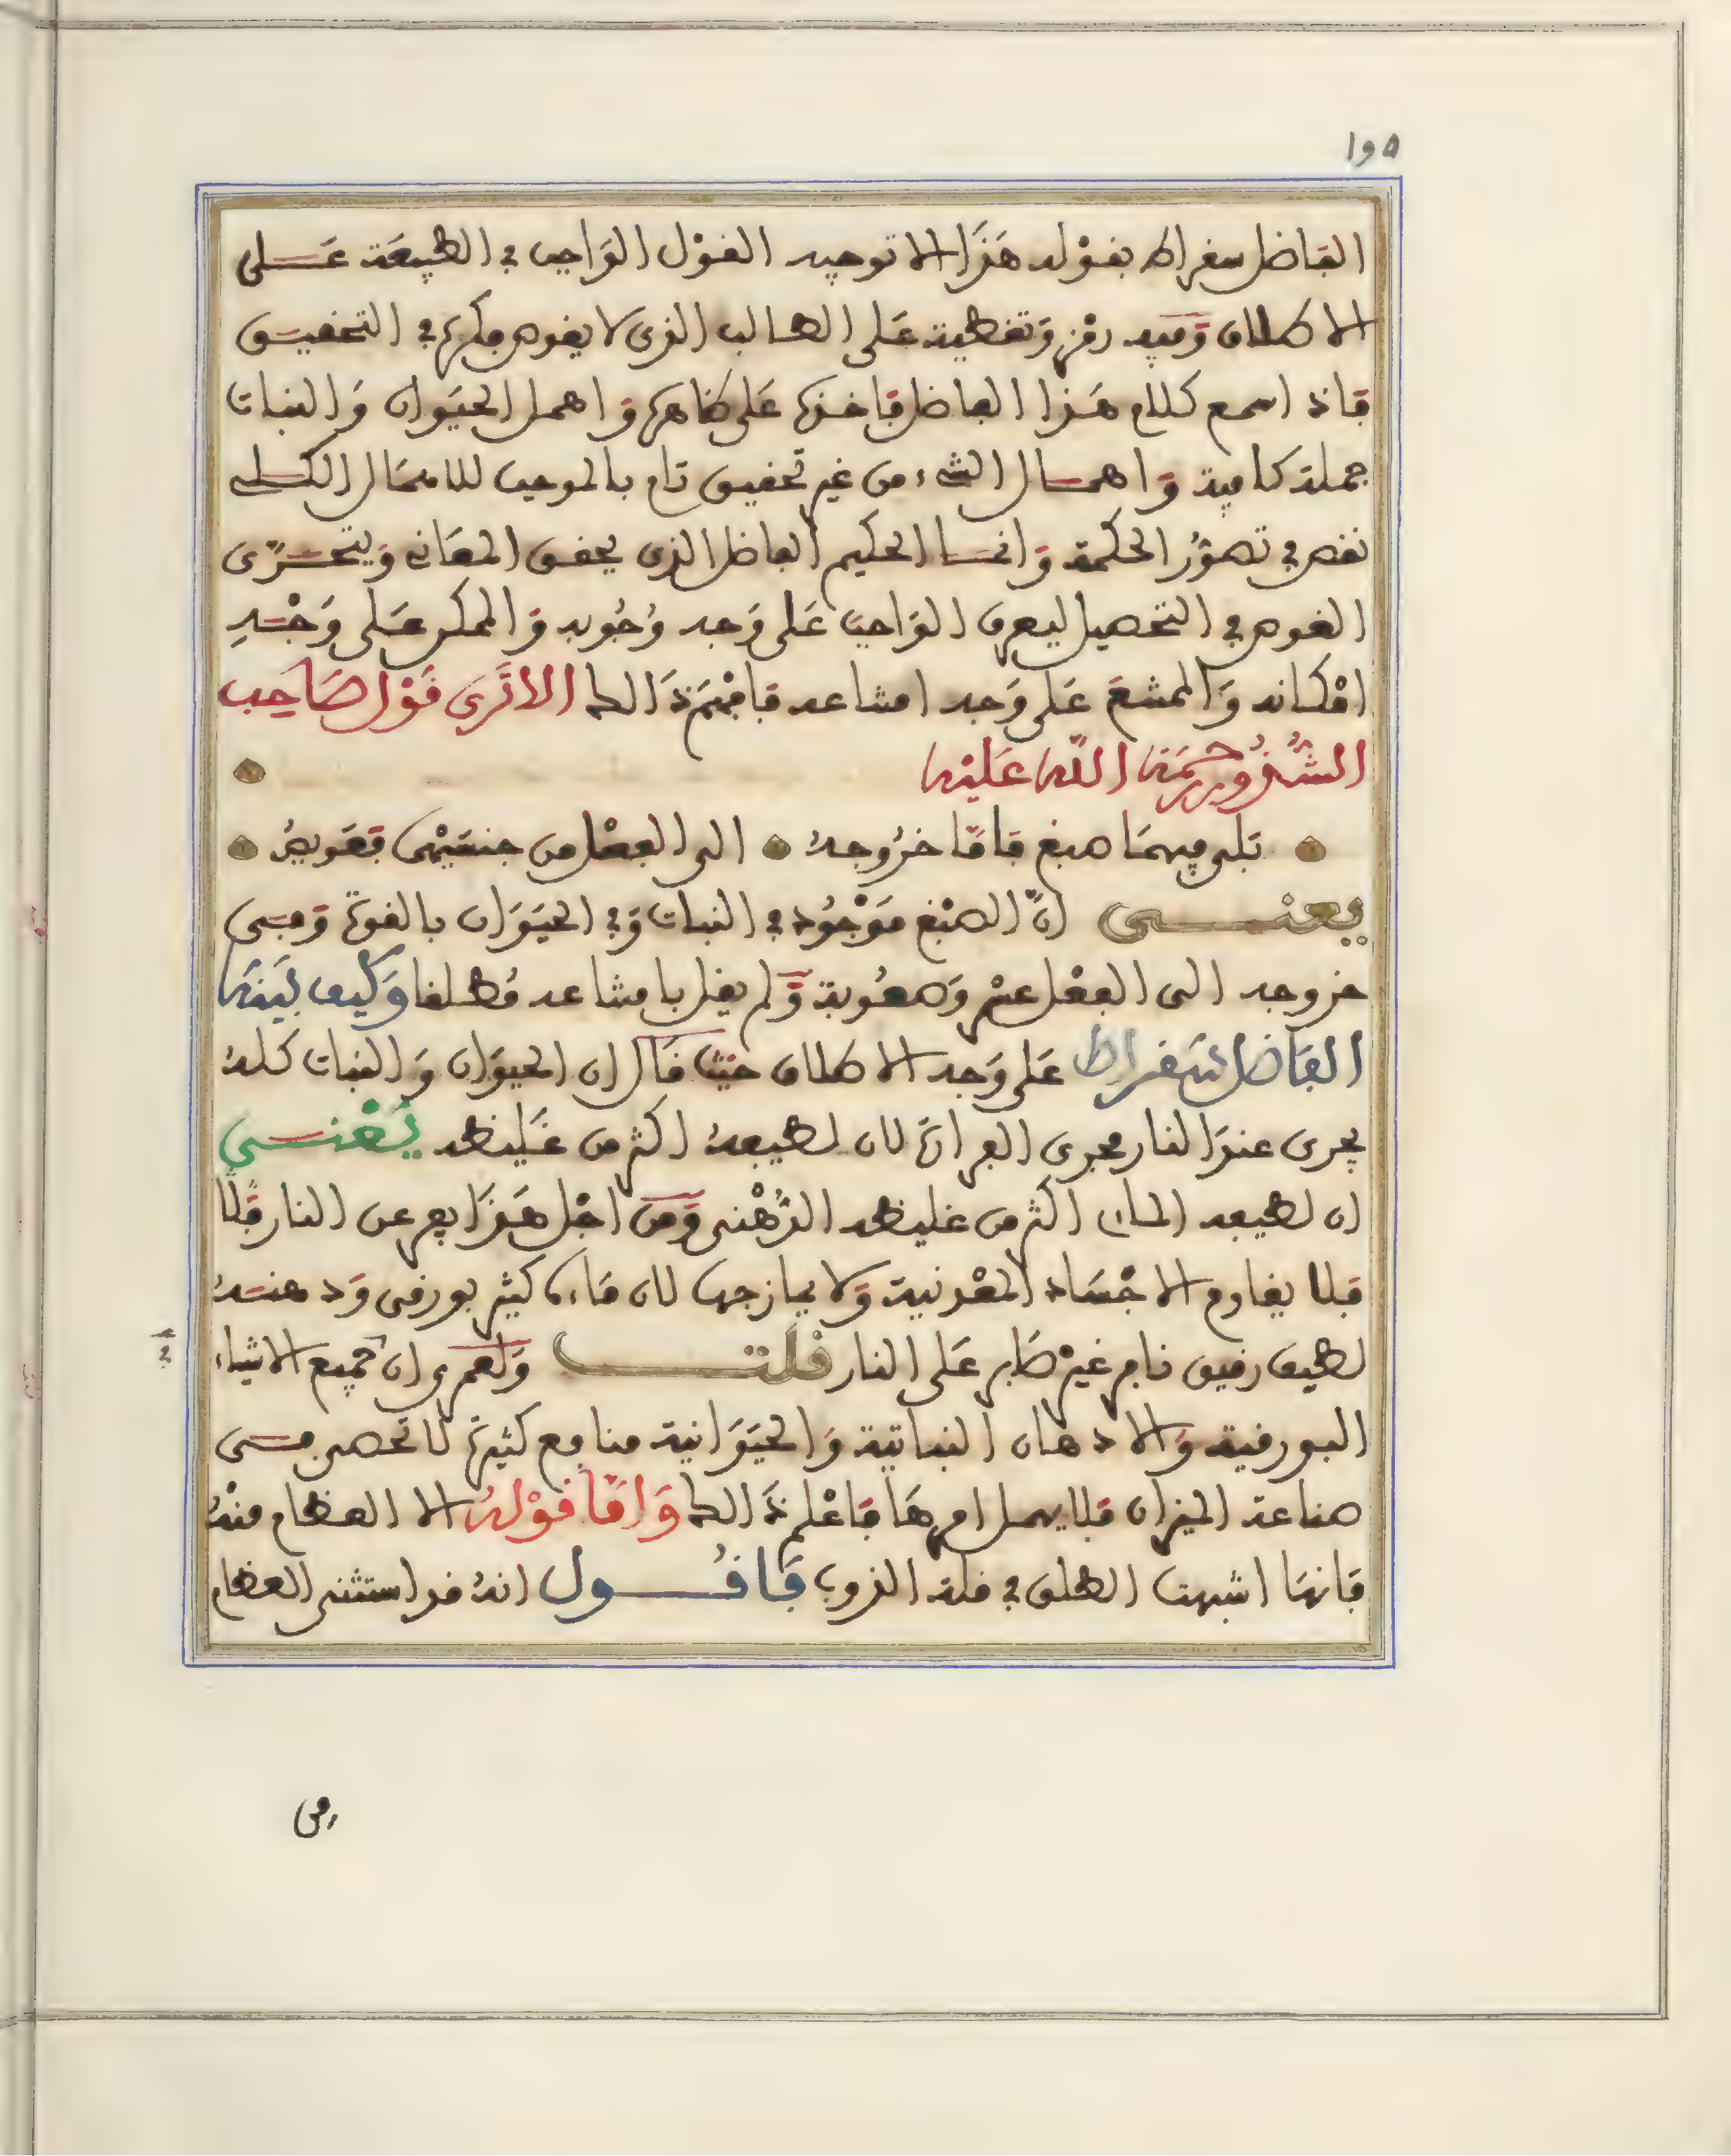 ١٩٥
الفاضل سقراط بقوله هَذَا الا توجيه القَوْل الوَاجب في الطبيعَة عَلى
الاطلاق وَفيه رمْز وَتغطية عَلى الطالب الذى لا يغوص فكره في التحقيق
فاذا سمع كلام هَذا الفاضل فاخذه عَلى ظاهره وَاهمل الحيَوان وَالنبات
جملة كافية وَاهمال الشىء من غير تحقيق تام بالموجب للاهمال الكلى
نقص في تصوُّر الحكمة وَانما الحكيم الفاضل الذى يحقق المعَانى وَيتحَرّى
الغوص في التحصيل ليعرف الوَاجب عَلى وَجه وُجُوبه وَالممكن عَلى وَجْه
امْكانه وَالممتنع عَلى وَجه امتناعه فافهَم ذَالك الا تَرَى قَوْل صَاحِب
الشُّذُورِ رَحْمَه الله عَليْه
بَلى فيهمَا صبغ فامّا خرُوجهُ الى الفعْل من جنسَيْهمَا فعَويصُ
يعنى انّ الصّبْغ مَوْجُود في النبات وَفي الحيَوَان بالقوة وَفى
خروجه الى الفعْل عسْر وَصعُوبة وَلم يقل بامتناعه مُطلقا وَكيف بَيّنَه
الفَاضل سَقراط عَلى وَجه الاطلاق حيث قَال ان الحيوَان وَالنبات كلهُ
يجرى عندَ النار مجرى الفرار لان لطيفهُ اكثر من غَليظه يَعْنى
ان لطيفه المائى اكثر من غليظه الدُّهْنى وَمن اجْل هَذَا يفر عن النار قَلّا
فلا يقاوم الاجْسَاد المعْدنية وَلا يمازجها لان مَاءه كثير بورقى وَدهنهُ
لطيف رقيق نافر غيْر صَابر عَلى النار قلت وَلعَمرى ان لجميع الاشياء
البورقية وَالادهان النباتية وَالحيَوَانية منافع كثيرة لا تحصر فى
صناعة الميزان فلا يهمل امرهَا فاعْلم ذَالك وَامّا قوْلهُ الا العظام منهُ
فانهَا اشبهت الطلق في قلة الذوب فاقول انهُ قد استثنى العظام
من